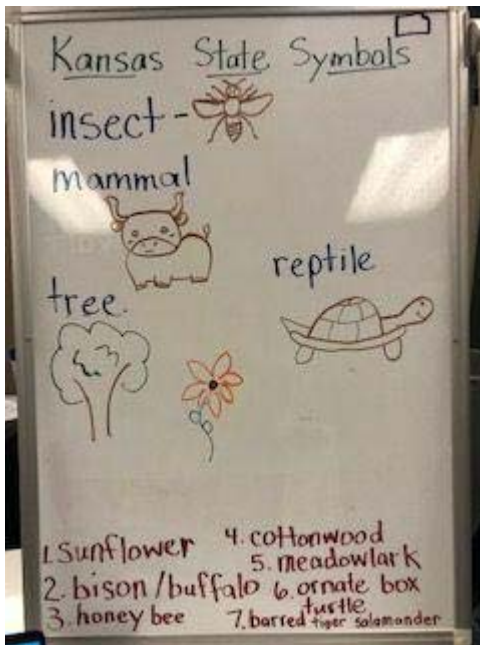 Kansas State Symbols
insect -
mammal
reptile
tree.
1. Sunflower
2. bison/buffalo
3. honey bee
4. cottonwood
5. meadowlark
6. ornate box
turtle
7. barred tiger salamander